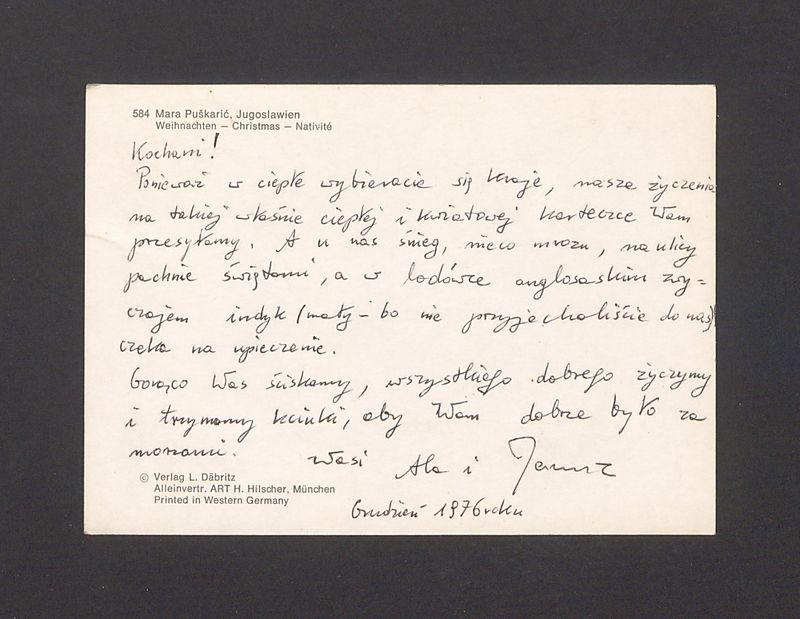 584 Mara Puškarić, Jugoslawien
Weihnachten – Christmas – Nativité
Kochani!
Ponieważ w ciepłe wybieracie się kraje, nasze życzenia
na takiej właśnie ciepłej i kwiatowej karteczce Wam
przesyłamy. A u nas śnieg, nieco mrozu, na ulicy
pachnie świętami, a w lodówce anglosaskim zwy=
czajem indyk (mały – bo nie przyjechaliście do nas)
czeka na upieczenie.
Gorąco Was ściskamy, wszystkiego dobrego życzymy
i trzymamy kciuki, aby Wam dobrze było za
morzami.
Wasi Ala i Janusz
© Verlag L. Däbritz
Alleinvertr. ART H. Hilscher, München
Printed in Western Germany
Grudzień 1976 roku